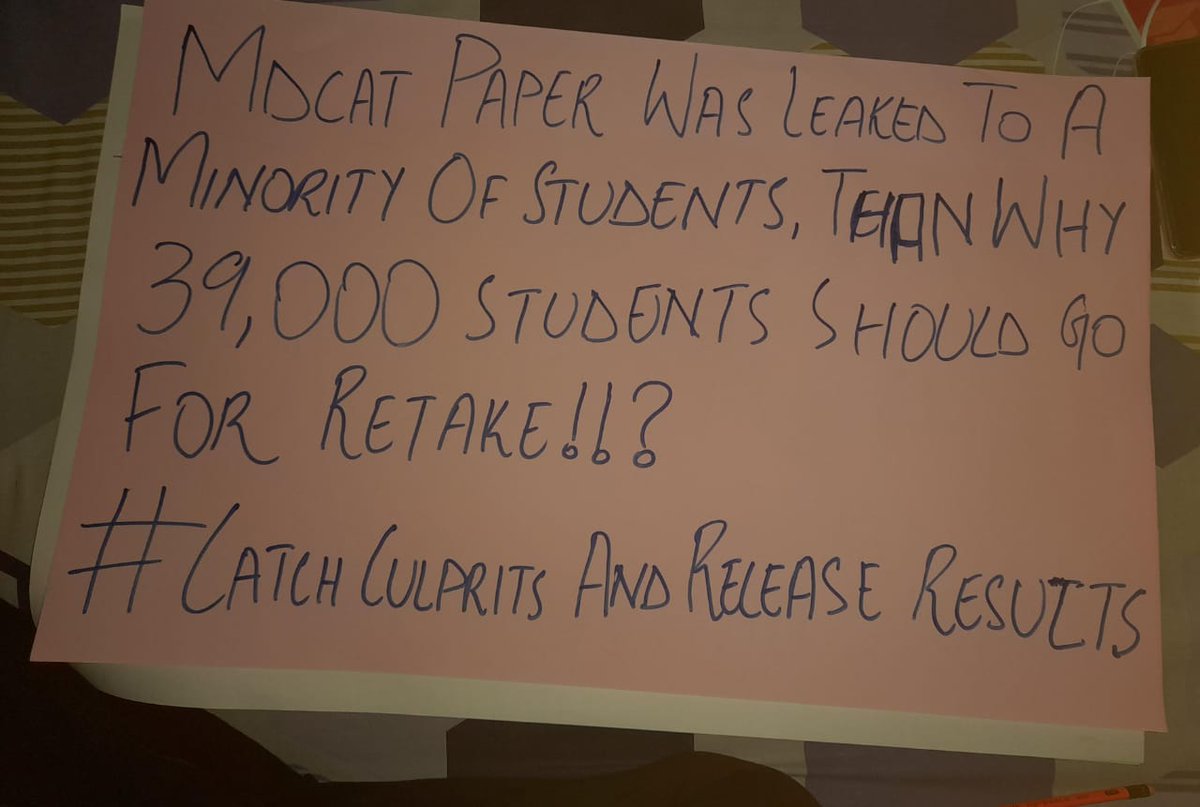 MDCAT PAPER WAS LEAKED TO A
MINORITY OF STUDENTS, THAN WHY
39,000 STUDENTS SHOULD GO
FOR RETAKE!!?
#CATCH CULPRITS AND RELEASE RESULTS